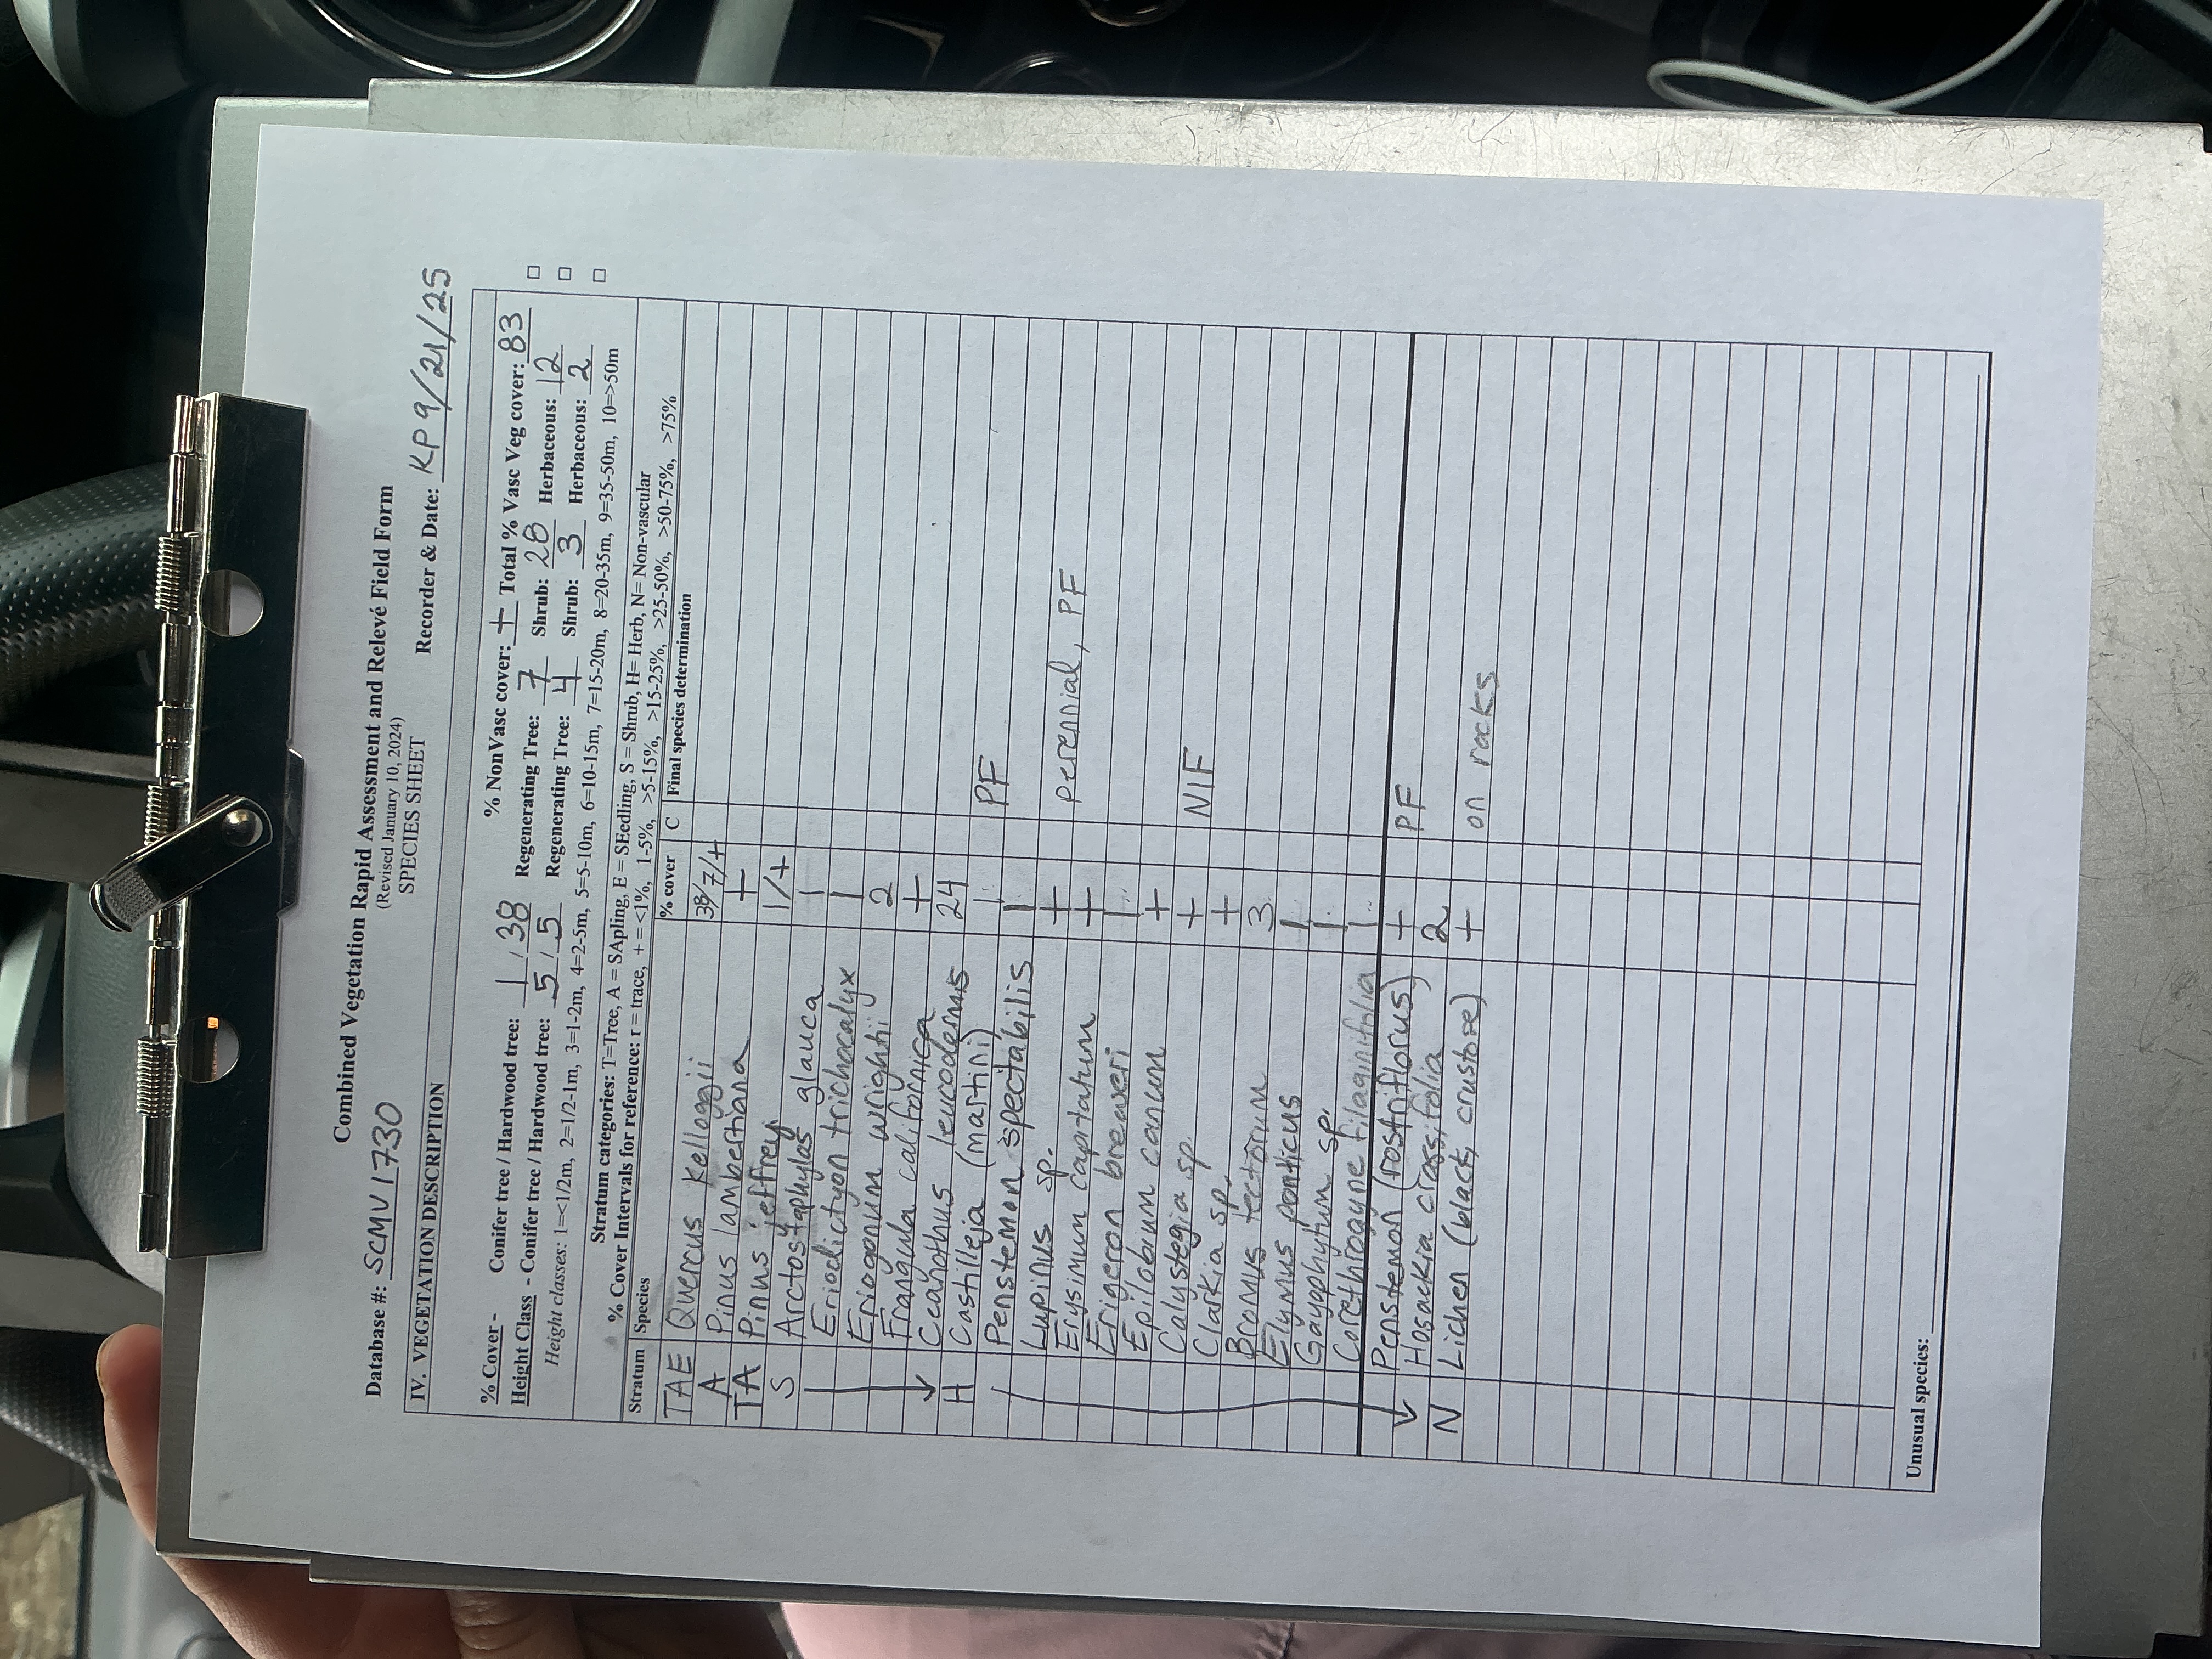 Combined Vegetation Rapid Assessment and Relevé Field Form
(Revised January 10, 2024)
SPECIES SHEET
Database #: SCMV1730 Recorder & Date: KP 9/21/25
IV. VEGETATION DESCRIPTION
% NonVasc cover: + Total % Vasc Veg cover: 83
% Cover - Conifer tree / Hardwood tree: 1 / 38 Regenerating Tree: 7 Shrub: 28 Herbaceous: 12
Height Class - Conifer tree / Hardwood tree: 5 / 5 Regenerating Tree: 4 Shrub: 3 Herbaceous: 2
Height classes: 1=<1/2m, 2=1/2-1m, 3=1-2m, 4=2-5m, 5=5-10m, 6=10-15m, 7=15-20m, 8=20-35m, 9=35-50m, 10=>50m
Stratum categories: T=Tree, A = SApling, E = SEedling, S = Shrub, H= Herb, N= Non-vascular
% Cover Intervals for reference: r = trace, + = <1%, 1-5%, >5-15%, >15-25%, >25-50%, >50-75%, >75%
Stratum Species % cover C Final species determination
TAE Quercus kelloggii 38/7/+
A Pinus lambertiana +
TA Pinus jeffreyi 1/+
S Arctostaphylos glauca 1
Eriodictyon trichocalyx 1
Eriogonum wrightii 2
Frangula californica +
Ceanothus leucodermis 24
H Castilleja (martini) 1 PF
Penstemon spectabilis 1
Lupinus sp. + perennial, PF
Erysimum capitatum +
Erigeron breweri 1
Epilobium canum +
Calystegia sp. + NIF
Clarkia sp. +
Bromus tectorum 3
Elymus ponticus 1
Gayophytum sp. 1
Corethrogyne filaginifolia 1
Penstemon (rostriflorus) + PF
Hosackia crassifolia 2
N Lichen (black, crustose) + on rocks
Unusual species: